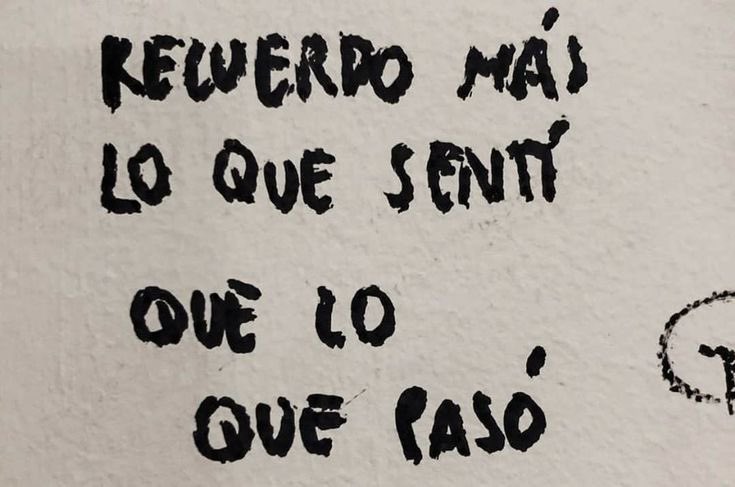 RECUERDO MÁS
LO QUE SENTÍ
QUE LO
QUE PASÓ